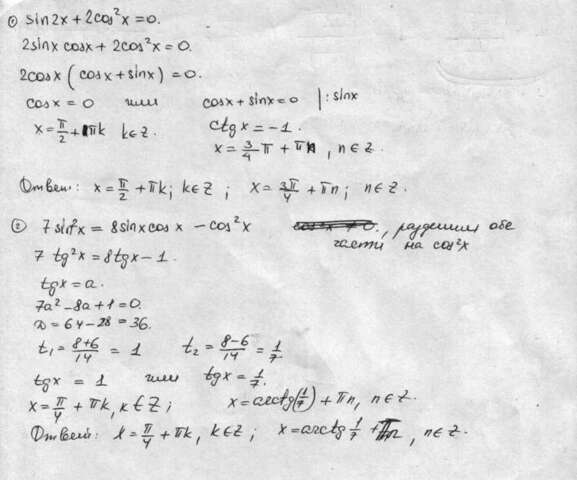 ① sin2x + 2cos²x = 0.
2sinx cosx + 2cos²x = 0.
2cosx (cosx + sinx) = 0.
cosx = 0 или cosx + sinx = 0 | : sinx
x = π/2 + πk k ∈ Z. ctgx = -1.
x = 3/4 π + πn, n ∈ Z.
Ответ: x = π/2 + πk; k ∈ Z; x = 3π/4 + πn; n ∈ Z.
② 7sin²x = 8sinx cosx - cos²x , разделим обе
части на cos²x
7 tg²x = 8tgx - 1.
tgx = a.
7a² - 8a + 1 = 0.
D = 64 - 28 = 36.
t₁ = 8+6/14 = 1 t₂ = 8-6/14 = 1/7.
tgx = 1 или tgx = 1/7.
x = π/4 + πk, k ∈ Z; x = arctg(1/7) + πn, n ∈ Z.
Ответ: x = π/4 + πk, k ∈ Z; x = arctg 1/7 + πn, n ∈ Z.